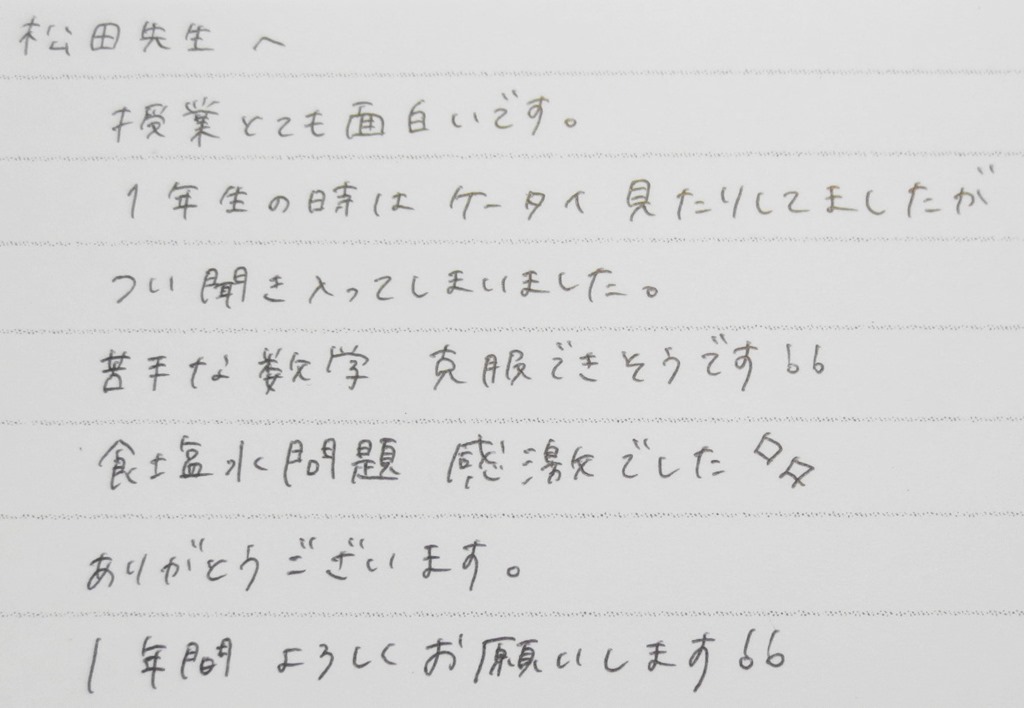 松田先生へ
授業とても面白いです。
1年生の時は ケータイ 見たりしてましたが
つい聞き入ってしまいました。
苦手な数学 克服できそうです!!
食塩水問題 感激でした
ありがとうございます。
1年間 よろしくお願いします!!